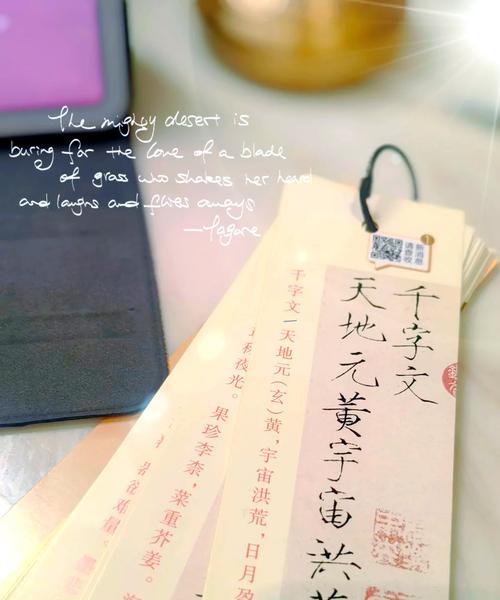 The mighty desert is
buring for the love of a blade
of grass who shakes her head
and laughs and flies aways
—Tagore
1
新消息
请查收
千字文
天地元黃宇宙洪荒
千字文一天地元（玄）黄，宇宙洪荒，日月盈
称夜光。果珍李柰，菜重芥姜。海